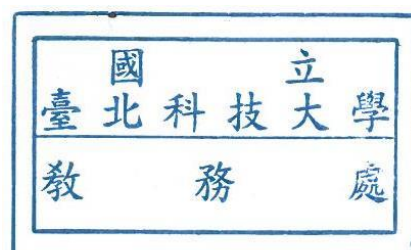 國立
臺北科技大學
教務處